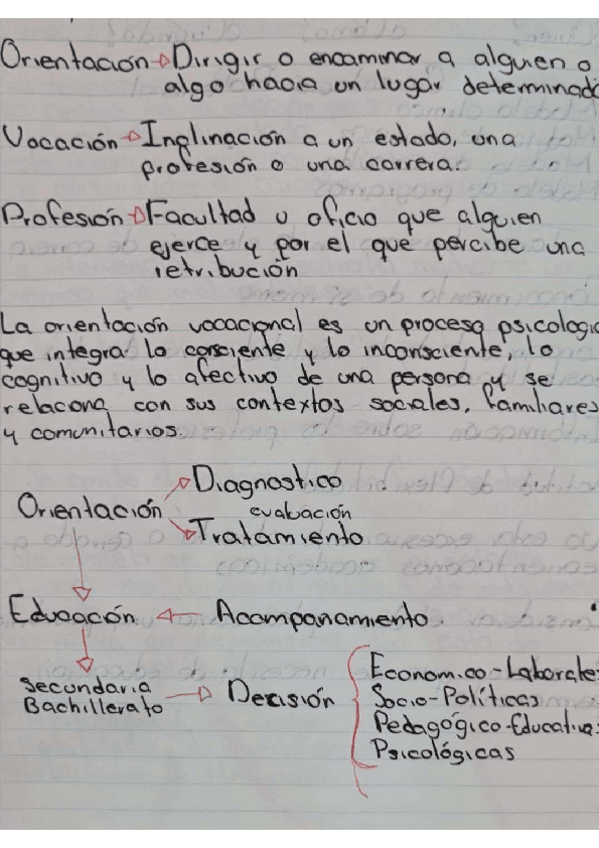 Orientación → Dirigir o encaminar a alguien o
algo hacia un lugar determinado
Vocación → Inglinación a un estado, una
profesión o una carrera.
Profesión → Facultad u oficio que alguien
ejerce y por el que percibe una
retribución
La orientación vocacional es un proceso psicologic
que integra lo consciente y lo inconsciente, lo
cognitivo y lo afectivo de una persona y se
relaciona con sus contextos sociales, familiares
y comunitarios.
Diagnostico
Orientación
evaluación
Tratamiento
Educación ← Acompanamiento.
Economico-Laborale
Secundaria
Bachillerato → Decisión
Socio-Políticas
Pedagógico-Educativa
Psicológicas